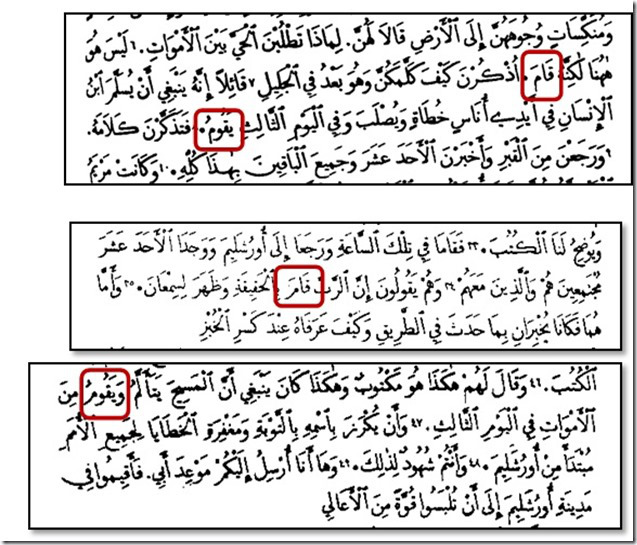 وَمُنَكِّسَاتٍ وُجُوهَهُنَّ إِلَى ٱلْأَرْضِ قَالَا لَهُنَّ. لِمَاذَا تَطْلُبْنَ ٱلْحَيَّ بَيْنَ ٱلْأَمْوَاتِ. ٦ لَيْسَ هُوَ
هٰهُنَا لٰكِنَّهُ قَامَ. أُذْكُرْنَ كَيْفَ كَلَّمَكُنَّ وَهُوَ بَعْدُ فِي ٱلْجَلِيلِ ٧ قَائِلًا إِنَّهُ يَنْبَغِي أَنْ يُسَلَّمَ ٱبْنُ
ٱلْإِنْسَانِ فِي أَيْدِي أُنَاسٍ خُطَاةٍ وَيُصْلَبَ وَفِي ٱلْيَوْمِ ٱلثَّالِثِ يَقُومُ. ٨ فَتَذَكَّرْنَ كَلَامَهُ.
٩ وَرَجَعْنَ مِنَ ٱلْقَبْرِ وَأَخْبَرْنَ ٱلْأَحَدَ عَشَرَ وَجَمِيعَ ٱلْبَاقِينَ بِهٰذَا كُلِّهِ. ١٠ وَكَانَتْ مَرْيَمُ
وَيُوضِحُ لَنَا ٱلْكُتُبَ. ٣٣ فَقَامَا فِي تِلْكَ ٱلسَّاعَةِ وَرَجَعَا إِلَى أُورُشَلِيمَ وَوَجَدَا ٱلْأَحَدَ عَشَرَ
مُجْتَمِعِينَ هُمْ وَٱلَّذِينَ مَعَهُمْ ٣٤ وَهُمْ يَقُولُونَ إِنَّ ٱلرَّبَّ قَامَ بِٱلْحَقِيقَةِ وَظَهَرَ لِسِمْعَانَ. ٣٥ وَأَمَّا
هُمَا فَكَانَا يُخْبِرَانِ بِمَا حَدَثَ فِي ٱلطَّرِيقِ وَكَيْفَ عَرَفَاهُ عِنْدَ كَسْرِ ٱلْخُبْزِ
ٱلْكُتُبَ. ٤٦ وَقَالَ لَهُمْ هٰكَذَا هُوَ مَكْتُوبٌ وَهٰكَذَا كَانَ يَنْبَغِي أَنَّ ٱلْمَسِيحَ يَتَأَلَّمُ وَيَقُومُ مِنَ
ٱلْأَمْوَاتِ فِي ٱلْيَوْمِ ٱلثَّالِثِ. ٤٧ وَأَنْ يُكْرَزَ بِٱسْمِهِ بِٱلتَّوْبَةِ وَمَغْفِرَةِ ٱلْخَطَايَا لِجَمِيعِ ٱلْأُمَمِ
مُبْتَدَأً مِنْ أُورُشَلِيمَ. ٤٨ وَأَنْتُمْ شُهُودٌ لِذٰلِكَ. ٤٩ وَهَا أَنَا أُرْسِلُ إِلَيْكُمْ مَوْعِدَ أَبِي. فَأَقِيمُوا فِي
مَدِينَةِ أُورُشَلِيمَ إِلَى أَنْ تُلْبَسُوا قُوَّةً مِنَ ٱلْأَعَالِي